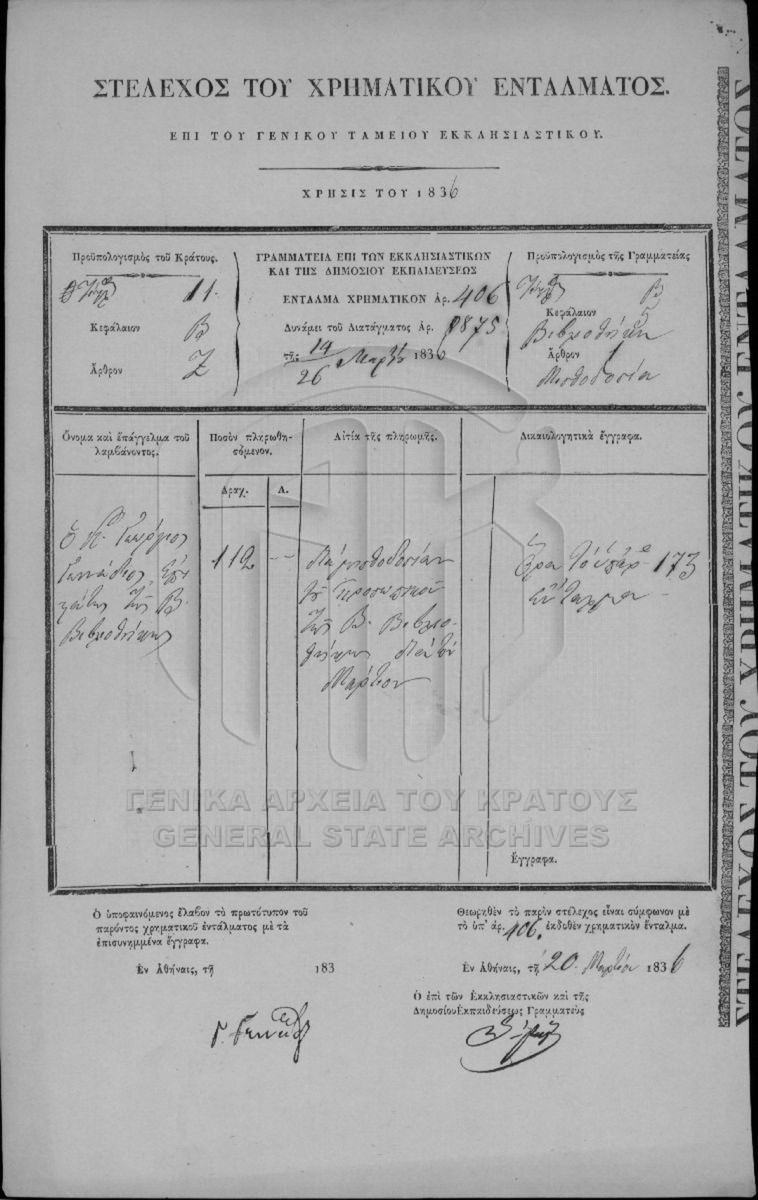 ΣΤΕΛΕΧΟΣ ΤΟΥ ΧΡΗΜΑΤΙΚΟΥ ΕΝΤΑΛΜΑΤΟΣ.
ΕΠΙ ΤΟΥ ΓΕΝΙΚΟΥ ΤΑΜΕΙΟΥ ΕΚΚΛΗΣΙΑΣΤΙΚΟΥ.
ΧΡΗΣΙΣ ΤΟΥ 1836
Προϋπολογισμὸς τοῦ Κράτους.
11.
Κεφάλαιον Β
Ἄρθρον Ζ
ΓΡΑΜΜΑΤΕΙΑ ΕΠΙ ΤΩΝ ΕΚΚΛΗΣΙΑΣΤΙΚΩΝ
ΚΑΙ ΤΗΣ ΔΗΜΟΣΙΟΥ ΕΚΠΑΙΔΕΥΣΕΩΣ
ΕΝΤΑΛΜΑ ΧΡΗΜΑΤΙΚΟΝ Ἀρ. 406
Δυνάμει τοῦ Διατάγματος Ἀρ. 9875
τῆς 14/26 Μαρτίου 1836
Προϋπολογισμὸς τῆς Γραμματείας
Β
Κεφάλαιον 5
Βιβλιοθήκη
Ἄρθρον 1
Μισθοδοσία
Ὄνομα καὶ ἐπάγγελμα τοῦ
λαμβάνοντος.
Ποσὸν πληρωθη-
σόμενον.
Δραχ. Λ.
Αἰτία τῆς πληρωμῆς.
Δικαιολογητικὰ ἔγγραφα.
Ὁ Κ. Γεώργιος
Γεννάδιος, Ἐπι
στάτης τῆς Β.
Βιβλιοθήκης
112 --
διὰ μισθοδοσίαν
τοῦ προσωπικοῦ
τῆς Β. Βιβλιο-
θήκης διὰ τὸν
Μάρτιον
Ὅρα τὸ ὑπ' ἀρ. 173
ἔνταλμα
Ἔγγραφα.
Ὁ ὑποφαινόμενος ἔλαβον τὸ πρωτότυπον τοῦ
παρόντος χρηματικοῦ ἐντάλματος μὲ τὰ
ἐπισυνημμένα ἔγγραφα.
Ἐν Ἀθήναις, τῇ 183
Γ. Γεννάδιος
Θεωρηθὲν τὸ παρὸν στέλεχος εἶναι σύμφωνον μὲ
τὸ ὑπ' ἀρ. 406. ἐκδοθὲν χρηματικὸν ἔνταλμα.
Ἐν Ἀθήναις, τῇ 20 Μαρτίου 1836
Ὁ ἐπὶ τῶν Ἐκκλησιαστικῶν καὶ τῆς
Δημοσίου Ἐκπαιδεύσεως Γραμματεὺς
ΓΕΝΙΚΑ ΑΡΧΕΙΑ ΤΟΥ ΚΡΑΤΟΥΣ
GENERAL STATE ARCHIVES
ΣΤΕΛΕΧΟΣ ΤΟΥ ΧΡΗΜΑΤΙΚΟΥ ΕΝΤΑΛΜΑΤΟΣ